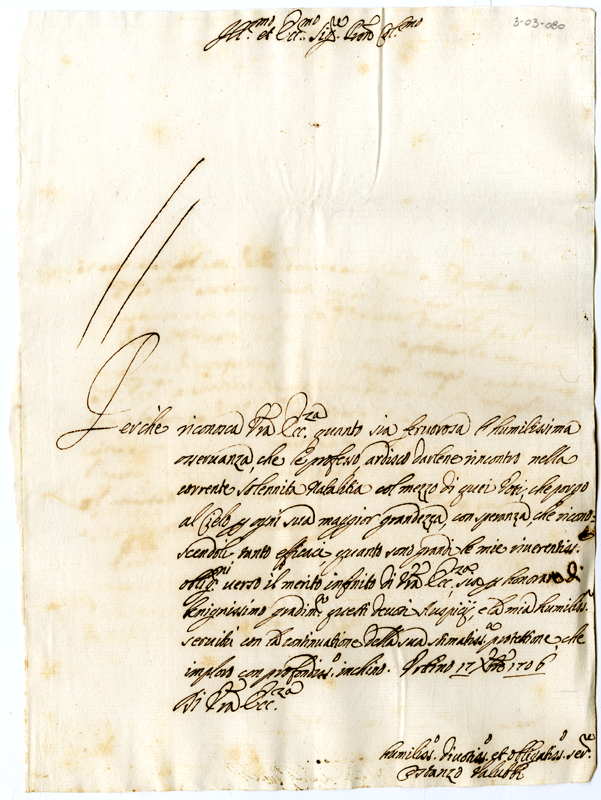 3-03-080
Ill.mo et Ecc.mo Sig.re Pron Col.mo
Perche riconosca Vra Ecc.za quanto sia fervorosa l'humilissima
osservanza, che le professo, ardisco darlene rincontro nella
corrente solennità Natalitia col mezzo di quei Voti, che porgo
al Cielo p ogni sua maggior grandezza, con speranza, che ricono-
scendoli tanto efficaci quanto sono grandi le mie riverentiss.
oblig.ni verso il merito infinito di Vra Ecc.za, sia p honorare di
benignissimo gradim.to questi devoti Auspicij, e la mia humiliss.a
servitù con la continuatione della sua stimatiss.a protettione, che
imploro con profondiss.o inchino. Urbino 17 Xbre 1706
Di Vra Ecc.za
humiliss.o divotiss.o et obligatiss.o ser.re
Costanzo